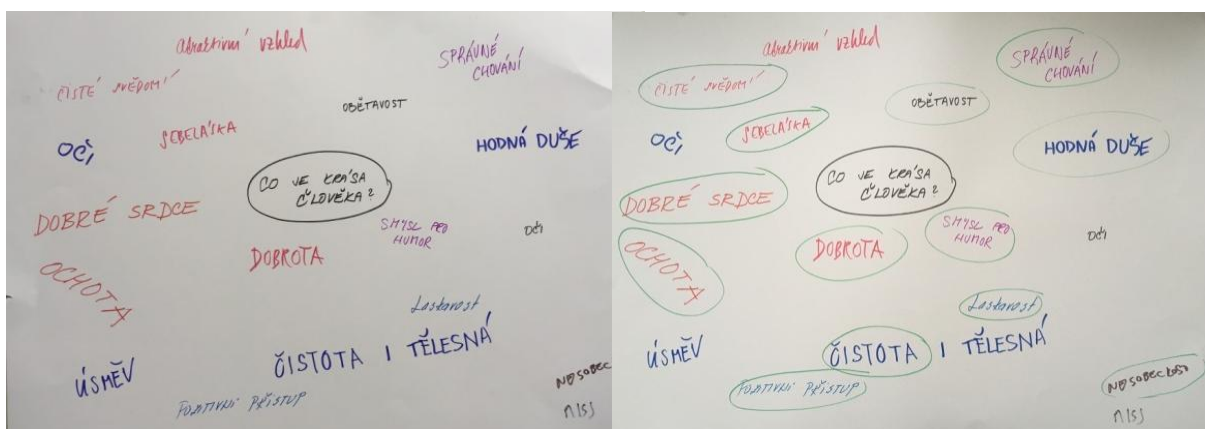 atraktivní vzhled
SPRÁVNÉ
CHOVÁNÍ
ČISTÉ SVĚDOMÍ
OBĚTAVOST
SEBELÁSKA
OČI
HODNÁ DUŠE
CO JE KRÁSA
ČLOVĚKA?
DOBRÉ SRDCE
SMYSL PRO
HUMOR
oči
DOBROTA
OCHOTA
Laskavost
ČISTOTA I TĚLESNÁ
ÚSMĚV
POZITIVNÍ PŘÍSTUP
atraktivní vzhled
SPRÁVNÉ
CHOVÁNÍ
ČISTÉ SVĚDOMÍ
OBĚTAVOST
SEBELÁSKA
OČI
HODNÁ DUŠE
CO JE KRÁSA
ČLOVĚKA?
DOBRÉ SRDCE
SMYSL PRO
HUMOR
oči
DOBROTA
OCHOTA
Laskavost
ČISTOTA I TĚLESNÁ
ÚSMĚV
POZITIVNÍ PŘÍSTUP